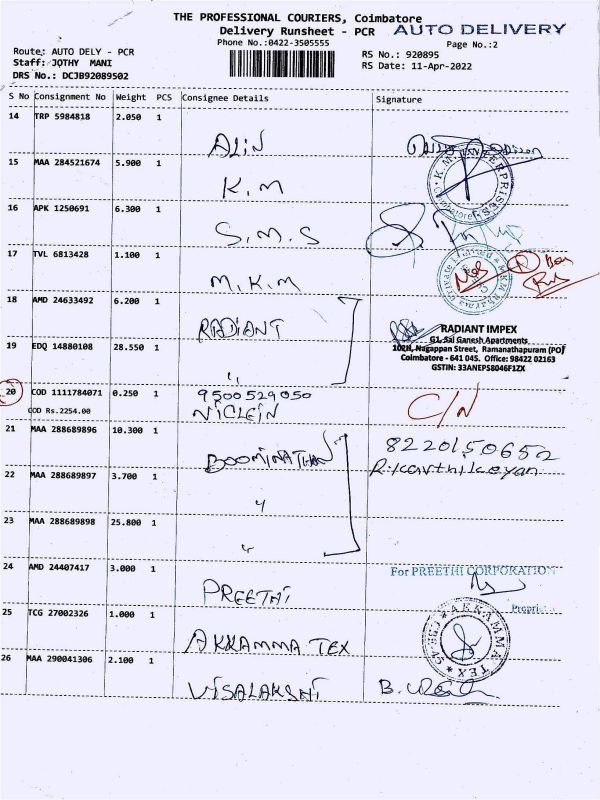 THE PROFESSIONAL COURIERS, Coimbatore
Delivery Runsheet - PCR AUTO DELIVERY
Phone No.:0422-3505555 Page No.:2
Route: AUTO DELY - PCR RS No.: 920895
Staff: JOTHY MANI RS Date: 11-Apr-2022
DRS No.: DCJB92089502
S No Consignment No Weight PCS Consignee Details Signature
14 TRP 5984818 2.050 1
ALIN
15 MAA 284521674 5.900 1
K.M
K.M. ENTERPRISES
16 APK 1250691 6.300 1
S.M.S
17 TVL 6813428 1.100 1
M.K.M
18 AMD 24633492 6.200 1
RADIANT
RADIANT IMPEX
G1, Sai Ganesh Apartments
102H, Nagappan Street, Ramanathapuram (PO)
Coimbatore - 641 045. Office: 98422 02163
GSTIN: 33ANEPS8046F1ZX
19 EDQ 14880108 28.550 1
"
20 COD 1111784071 0.250 1 9500529050 C/N
COD Rs.2254.00 NICLEIN
21 MAA 288689896 10.300 1
BOOMINATHAN 8220150652
R.Karthikeyan
22 MAA 288689897 3.700 1
"
23 MAA 288689898 25.800 1
"
24 AMD 24407417 3.000 1 For PREETHI CORPORATION
PREETHI
25 TCG 27002326 1.000 1
AKKAMMA TEX
AKKAMMA TEX
26 MAA 290041306 2.100 1
VISALAKSHI B.